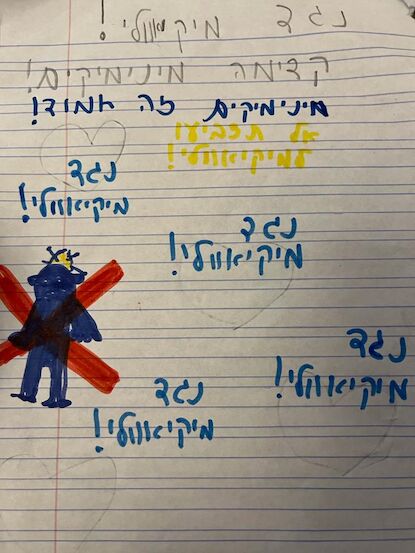 נגד מיקיאוולי!
קדימה מינימיקים!
מינימיקים זה חמוד!
אל תצביעו
למיקיאוולי!
נגד
מיקיאוולי!
נגד
מיקיאוולי!
נגד
מיקיאוולי!
נגד
מיקיאוולי!